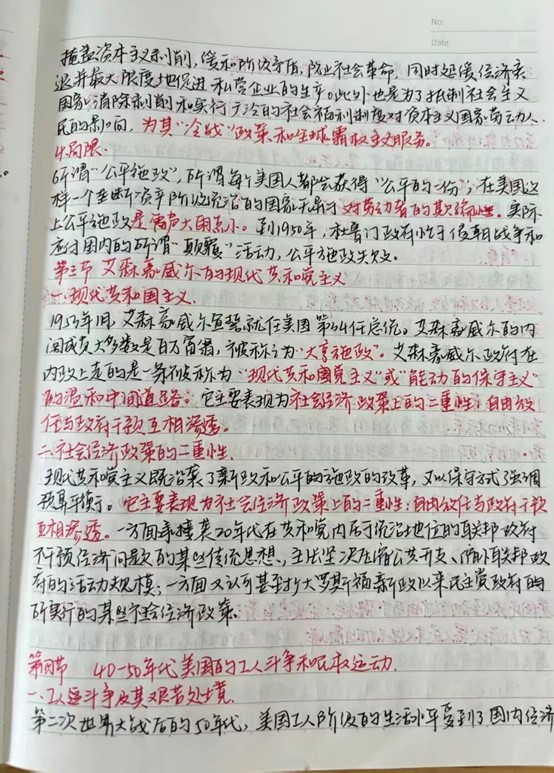 No:
Date
掩盖资本主义剥削,缓和阶级矛盾,防止社会革命,同时延缓经济衰
退并最大限度地促进私营企业的生产。此外也是为了抵制社会主义
国家消除剥削和实行广泛的社会福利制度对资本主义国家劳动人
民的影响,为其“冷战”政策和全球霸权主义服务。
4.局限:
所谓“公平施政”,所谓每个美国人都会获得“公平的一份”,在美国这
样一个垄断资产阶级统治的国家无异于对劳动者的欺骗性。实际
上公平施政是雷声大雨点小。到1950年,杜鲁门政府忙于侵朝战争和
应付国内的所谓“颠覆”活动,公平施政失效。
第三节 艾森豪威尔的现代共和党主义
一.现代共和国主义.
1953年1月,艾森豪威尔宣誓就任美国第34任总统。艾森豪威尔的内
阁成员大多数是百万富翁,被称之为“大亨施政”。艾森豪威尔政府在
内政上走的是一条被称为“现代共和国党主义”或“能动的保守主义”
的温和中间道路。它主要表现为社会经济政策上的二重性:自由放
任与政府干预互相渗透。
二.社会经济政策的二重性.
现代共和党主义既沿袭了新政和公平的施政的改革,又以保守方式强调
预算平衡。它主要表现为社会经济政策上的二重性:自由放任与政府干预
互相渗透。一方面承接着20年代在共和党内居于统治地位的联邦政府
不干预经济问题的某些传统思想、主张坚决压缩公共开支、缩小联邦政
府的活动规模;一方面又认可甚至扩大罗斯福新政以来民主党政府的
所实行的某些社会经济政策。
第四节 40-50年代美国的工人斗争和民权运动.
一、工运斗争及其艰苦处境.
第二次世界大战后的50年代,美国工人阶级的生活水平受到了国内经济